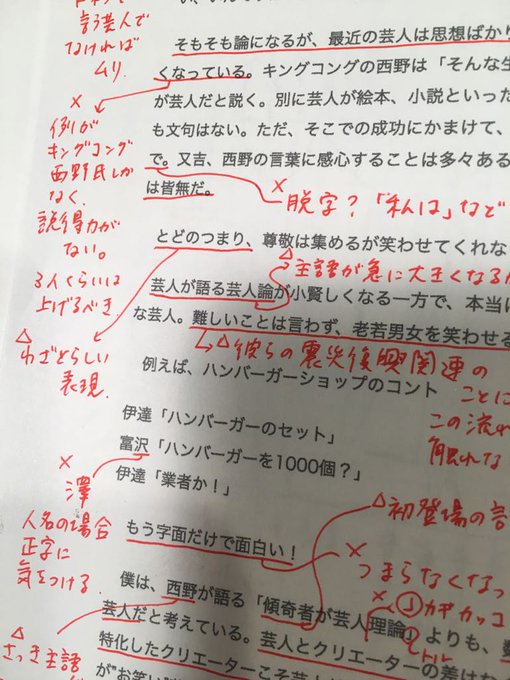 言う芸人で
なければ
ムリ.
そもそも論になるが、最近の芸人は思想ばかり
くなっている。キングコングの西野は「そんな生
が芸人だと説く。別に芸人が絵本、小説といった
も文句はない。ただ、そこでの成功にかまけて、
で。又吉、西野の言葉に感心することは多々ある
は皆無だ。
×
例が
キングコング
西野氏しか
なく.
説得力が
ない。
3人くらいは
上げるべき
×
脱字?「私は」など
とどのつまり、尊敬は集めるが笑わせてくれな
△主語が急に大きくなる
芸人が語る芸人論が小賢しくなる一方で、本当に
な芸人。難しいことは言わず、老若男女を笑わせる
△
わざとらしい
表現.
△彼らの震災復興関連の
ことに
この流れ
触れな
例えば、ハンバーガーショップのコント
伊達「ハンバーガーのセット」
富沢「ハンバーガーを1000個?」
伊達「業者か!」
×
澤
人名の場合
正字に
気をつける.
△初登場の言
もう字面だけで面白い!
×
つまらなくなっ
× ①カギカッコ
トル
僕は、西野が語る「傾奇者が芸人理論」よりも、
芸人だと考えている。芸人とクリエーターの差は
特化したクリエーターこそ芸人
が"お笑い
△
さっき主語